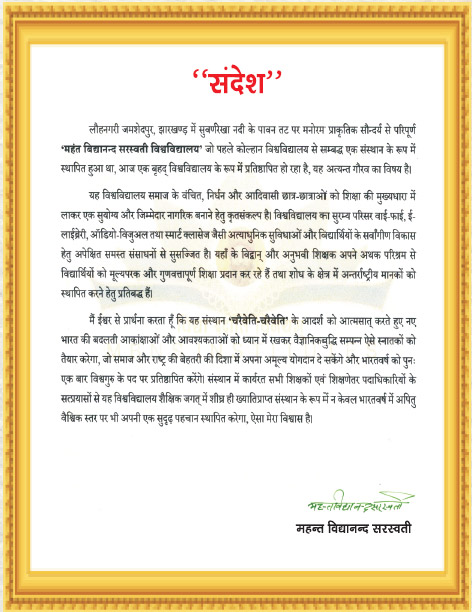 “संदेश”
लौहनगरी जमशेदपुर, झारखण्ड में सुवर्णरेखा नदी के पावन तट पर मनोरम प्राकृतिक सौन्दर्य से परिपूर्ण
‘महंत विद्यानन्द सरस्वती विश्वविद्यालय’ जो पहले कोल्हान विश्वविद्यालय से सम्बद्ध एक संस्थान के रूप में
स्थापित हुआ था, आज एक बृहद् विश्वविद्यालय के रूप में प्रतिष्ठापित हो रहा है, यह अत्यन्त गौरव का विषय है।
यह विश्वविद्यालय समाज के वंचित, निर्धन और आदिवासी छात्र-छात्राओं को शिक्षा की मुख्यधारा में
लाकर एक सुयोग्य और जिम्मेदार नागरिक बनाने हेतु कृतसंकल्प है। विश्वविद्यालय का सुरम्य परिसर वाई-फाई, ई-
लाईब्रेरी, ऑडियो-विजुअल तथा स्मार्ट क्लासेज जैसी अत्याधुनिक सुविधाओं और विद्यार्थियों के सर्वांगीण विकास
हेतु अपेक्षित समस्त संसाधनों से सुसज्जित है। यहाँ के विद्वान् और अनुभवी शिक्षक अपने अथक परिश्रम से
विद्यार्थियों को मूल्यपरक और गुणवत्तापूर्ण शिक्षा प्रदान कर रहे हैं तथा शोध के क्षेत्र में अन्तर्राष्ट्रीय मानकों को
स्थापित करने हेतु प्रतिबद्ध हैं।
मैं ईश्वर से प्रार्थना करता हूँ कि यह संस्थान ‘चरैवेति-चरैवेति’ के आदर्श को आत्मसात् करते हुए नए
भारत की बदलती आकांक्षाओं और आवश्यकताओं को ध्यान में रखकर वैज्ञानिकबुद्धि सम्पन्न ऐसे स्नातकों को
तैयार करेगा, जो समाज और राष्ट्र की बेहतरी की दिशा में अपना अमूल्य योगदान दे सकेंगे और भारतवर्ष को पुनः
एक बार विश्वगुरु के पद पर प्रतिष्ठापित करेंगे। संस्थान में कार्यरत सभी शिक्षकों एवं शिक्षणेतर पदाधिकारियों के
सत्प्रयासों से यह विश्वविद्यालय शैक्षिक जगत् में शीघ्र ही ख्यातिप्राप्त संस्थान के रूप में न केवल भारतवर्ष में अपितु
वैश्विक स्तर पर भी अपनी एक सुदृढ़ पहचान स्थापित करेगा, ऐसा मेरा विश्वास है।
महन्तविद्यानन्दसरस्वती
महन्त विद्यानन्द सरस्वती